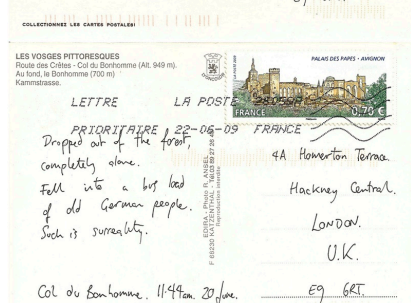 COLLECTIONNEZ LES CARTES POSTALES!
LES VOSGES PITTORESQUES
Route des Crêtes - Col du Bonhomme (Alt. 949 m).
Au fond, le Bonhomme (700 m)
Kammstrasse.
PALAIS DES PAPES - AVIGNON
FRANCE 0,70 €
LETTRE LA POSTE
PRIORITAIRE 22-06-09 FRANCE
Dropped out of the forest,
completely alone.
Fell into a bus load
of old German people.
Such is surreality.
Col du Bonhomme. 11.44am. 20 June.
EDIRA - Photo R. ANSEL
F 68230 KATZENTHAL - Tél.03 89 27 26
Reproduction interdite
4A Homerton Terrace.
Hackney Central.
LONDON.
U.K.
E9 6RT.